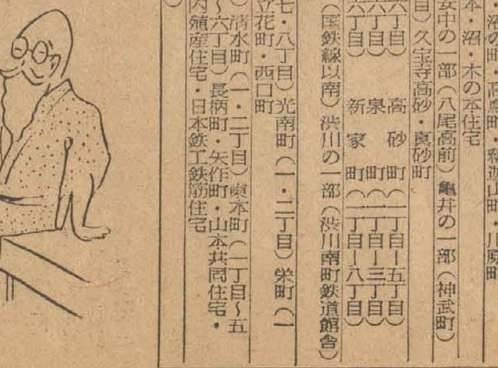 沼の町・高町・緑遊山町・川原町
本・沼・木の本住宅
安中の一部(八尾高前)亀井の一部(神武町)
目)久宝寺高砂・真砂町
六丁目)高砂町(一丁目ー五丁目)
泉町(一丁目ー三丁目)
六丁目)新家町(一丁目ー八丁目)
(国鉄線以南)渋川の一部(渋川南町鉄道館舎)
七・八丁目)光南町(一・二丁目)栄町(一
立花町・西口町
)清水町(一・二丁目)東本町(一丁目〜五
〜六丁目)長柄町・矢作町・山本共同住宅・
内殖産住宅・日本鉄工鉄筋住宅
)